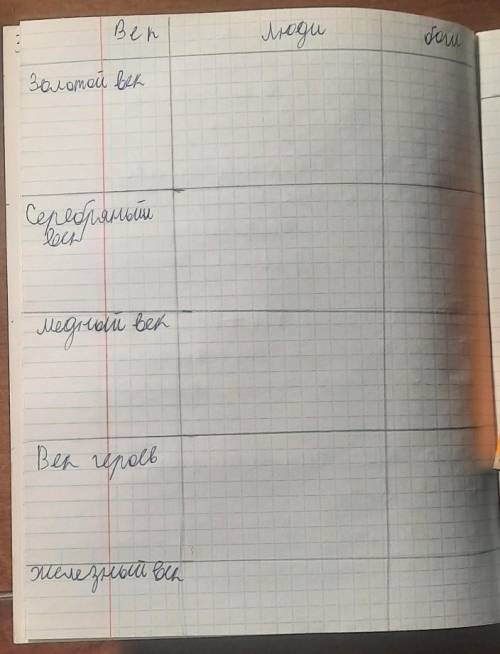 Век люди боги
Золотой век
Серебряный
век
медный век
Век героев
железный век